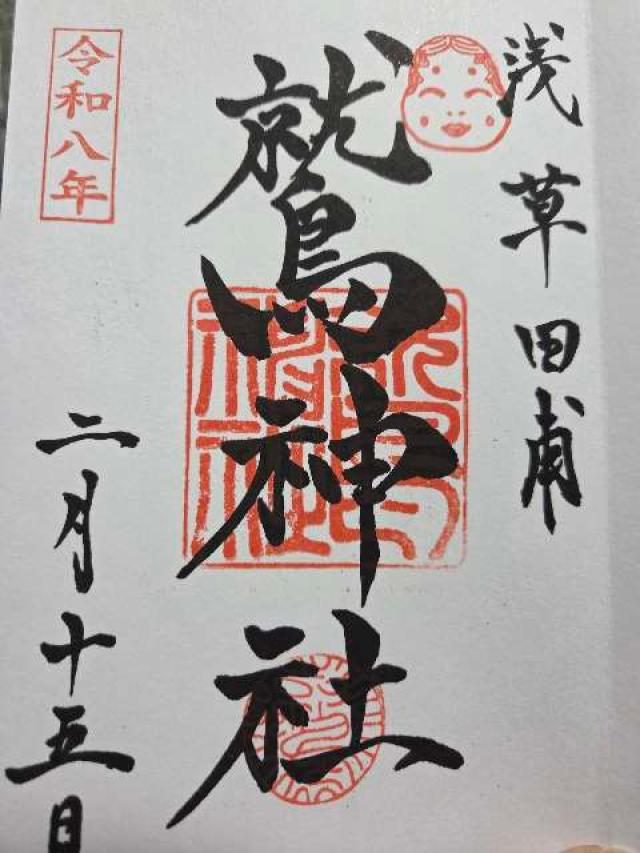 浅草田甫
鷲神社
令和八年
二月十五日